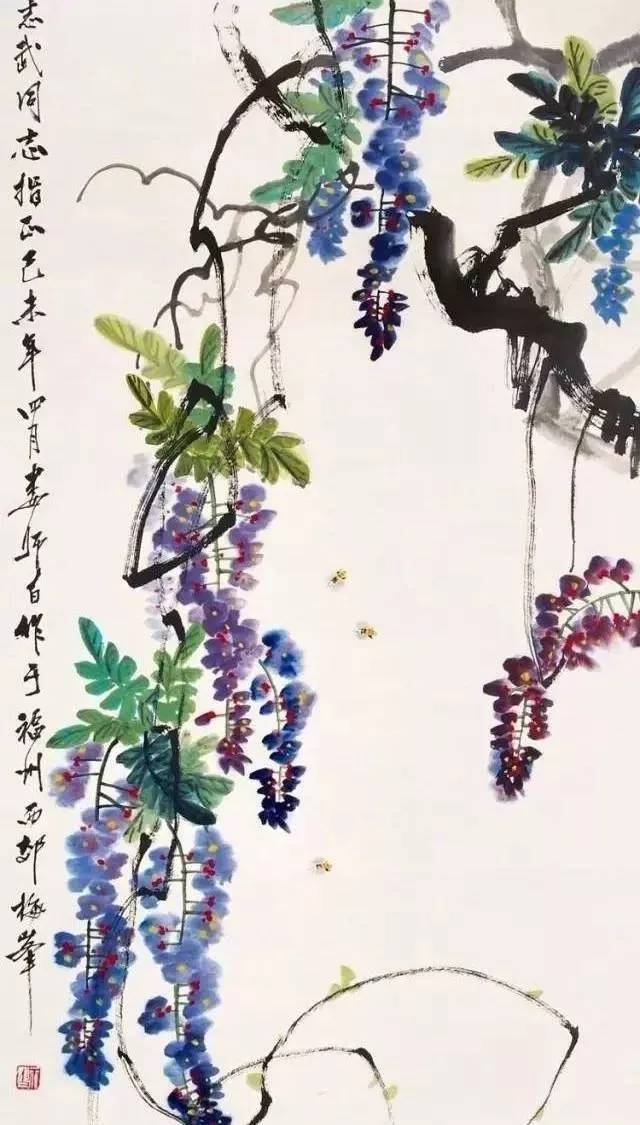 志武同志指正己未年四月娄师白作于福州西郊梅峯